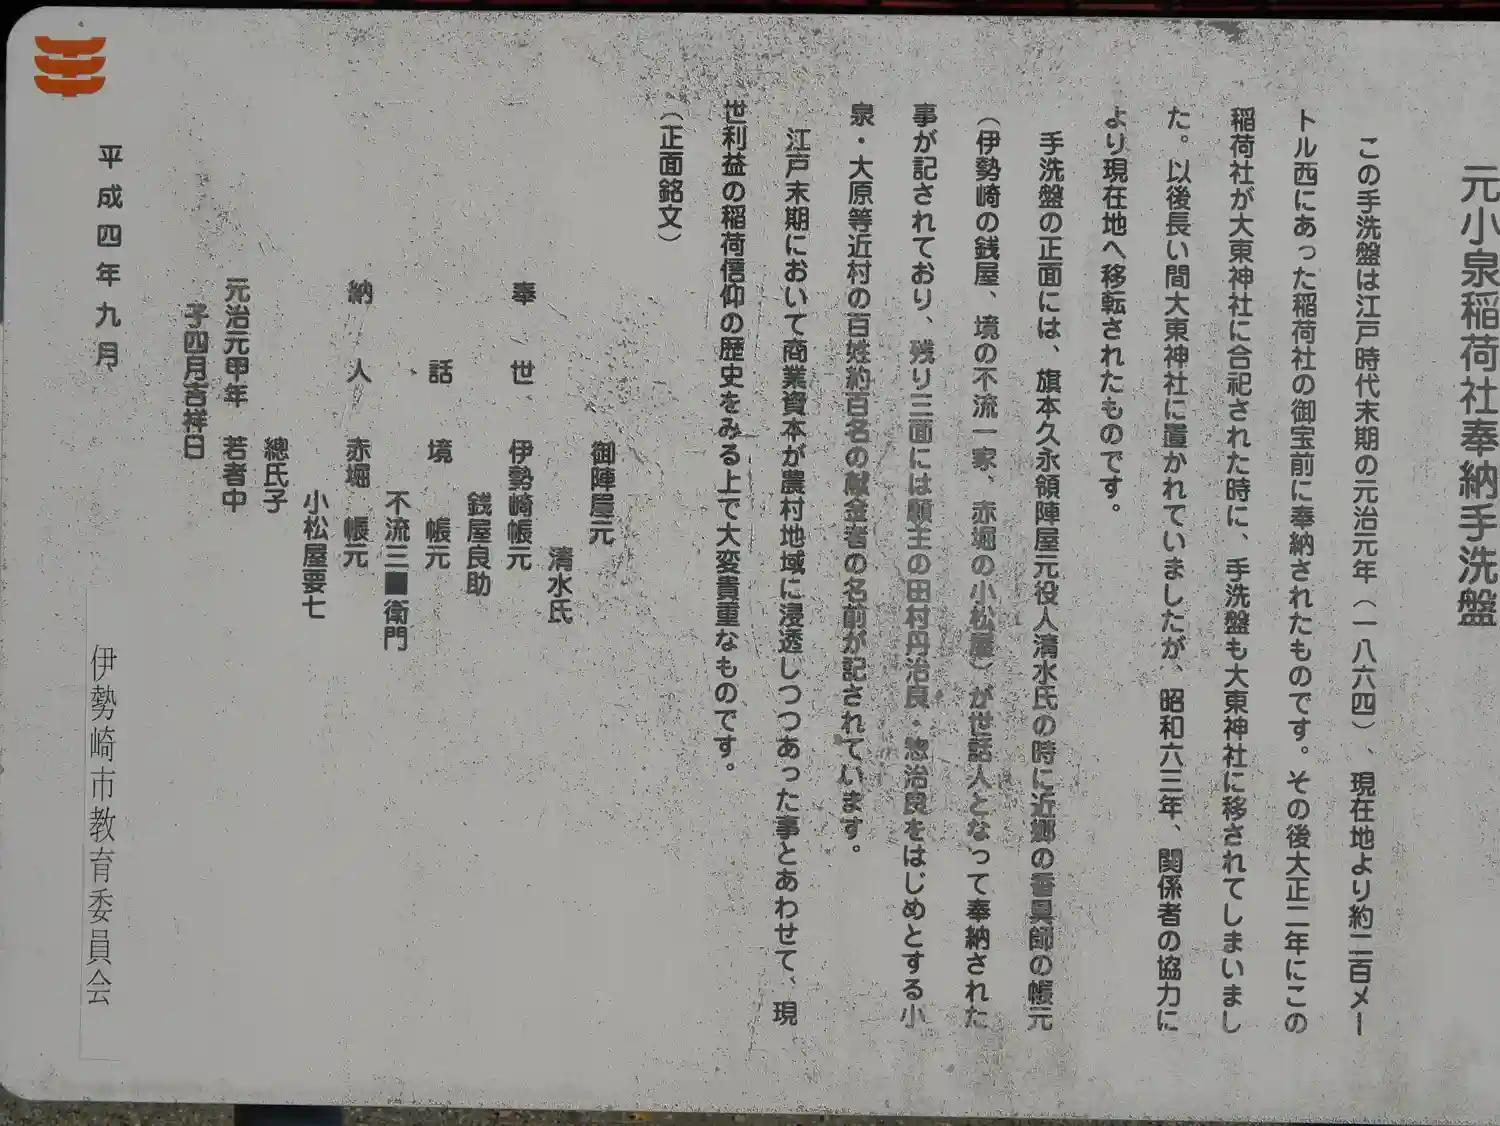 元小泉稲荷社奉納手洗盤
この手洗盤は江戸時代末期の元治元年（一八六四）、現在地より約二百メー
トル西にあった稲荷社の御宝前に奉納されたものです。その後大正二年にこの
稲荷社が大東神社に合祀された時に、手洗盤も大東神社に移されてしまいまし
た。以後長い間大東神社に置かれていましたが、昭和六三年、関係者の協力に
より現在地へ移転されたものです。
手洗盤の正面には、旗本久永領陣屋元役人清水氏の時に近郷の香具師の帳元
（伊勢崎の銭屋、境の不流一家、赤堀の小松屋）が世話人となって奉納された
事が記されており、残り三面には願主の田村丹治良・惣治良をはじめとする小
泉・大原等近村の百姓約百名の献金者の名前が記されています。
江戸末期において商業資本が農村地域に浸透しつつあった事とあわせて、現
世利益の稲荷信仰の歴史をみる上で大変貴重なものです。
（正面銘文）
御陣屋元
清水氏
奉世 伊勢崎帳元
銭屋良助
話 境 帳元
不流三■衛門
納人 赤堀 帳元
小松屋要七
總氏子
元治元甲年 若者中
子四月吉祥日
平成四年九月
伊勢崎市教育委員会